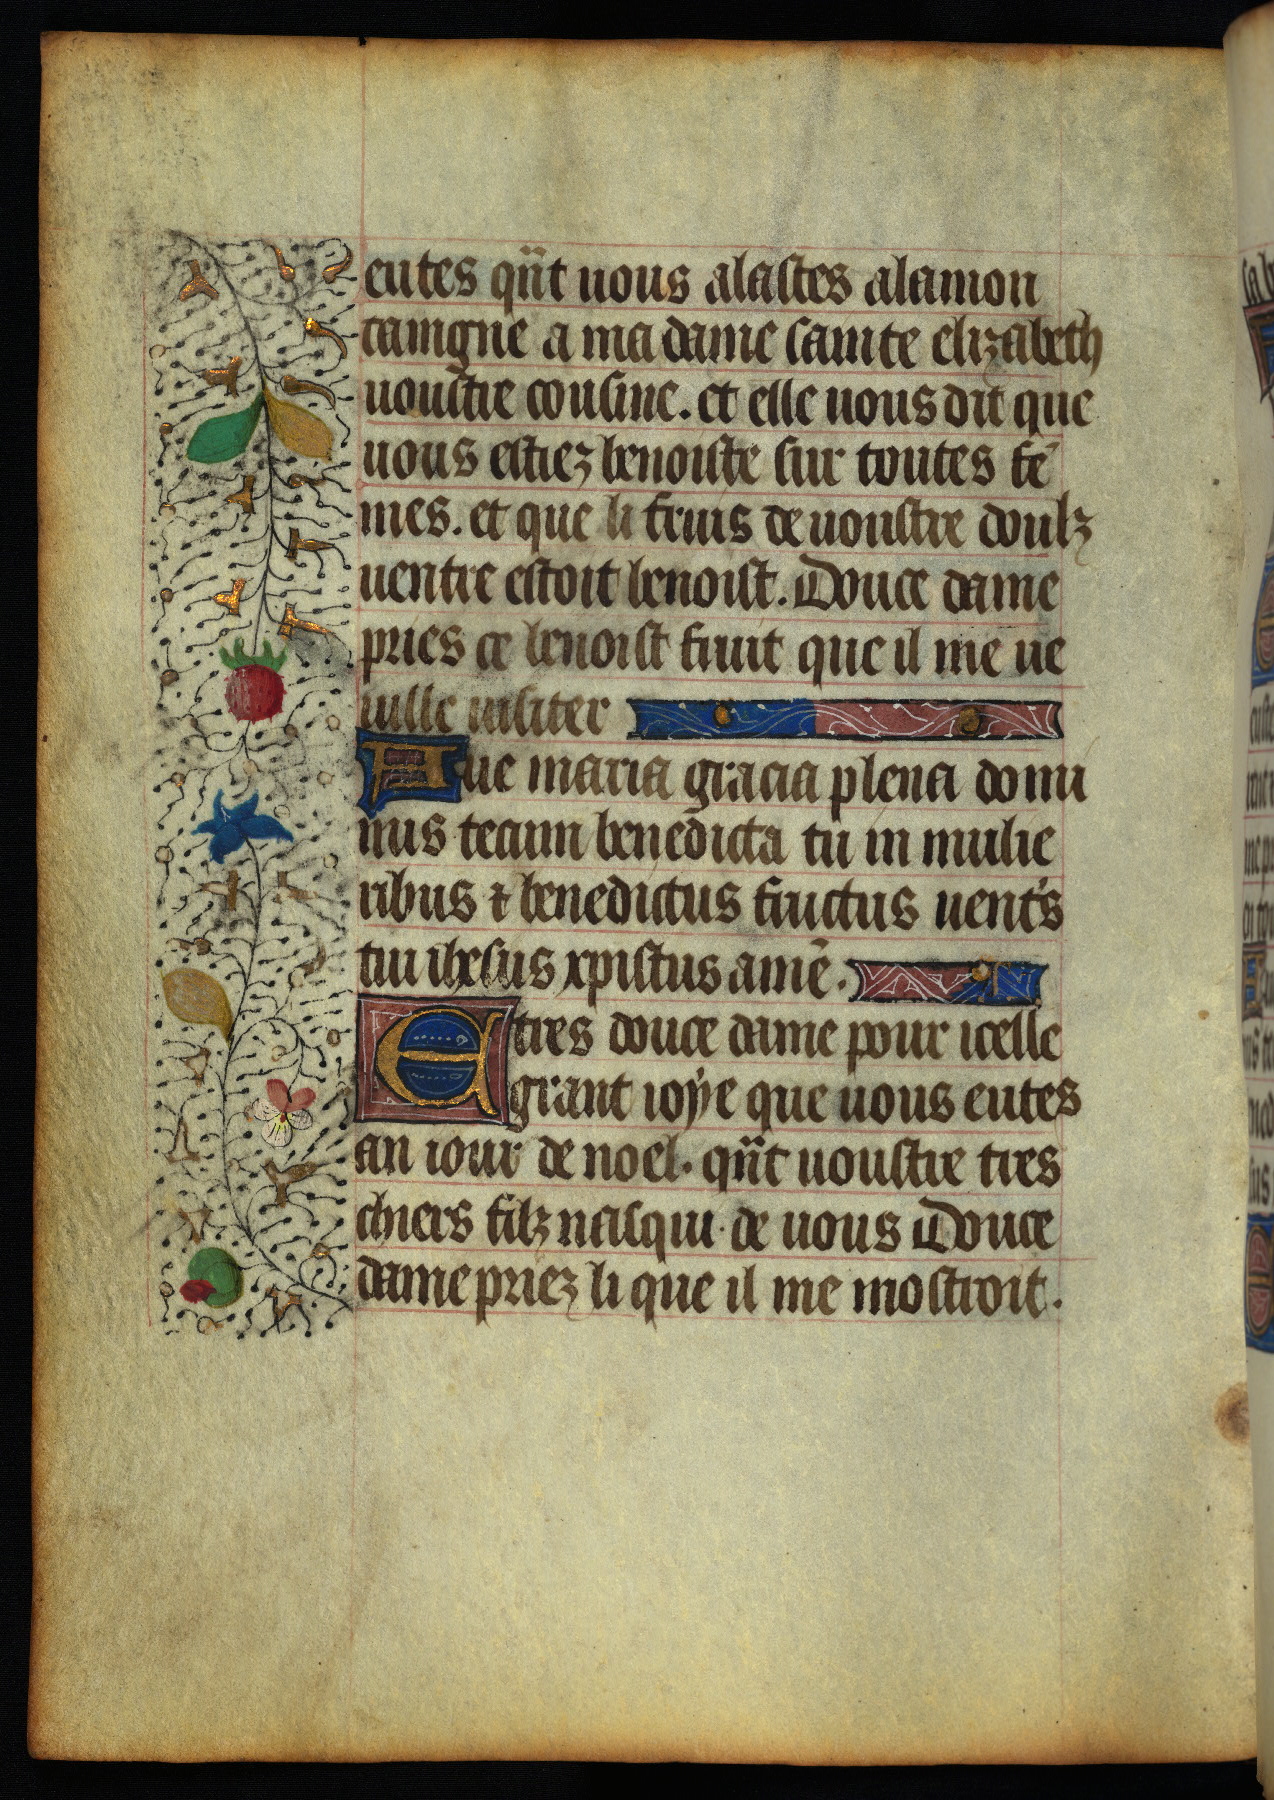 eutes qñt uous alastes alamon
taingne a ma dame sainte elizabeth
uoustre cousine. et elle uous dit que
uous estiez benoiste sur toutes fē
mes. et que li fruis de uoustre doulz
uentre estoit benoist. Douce dame
pries ce benoist fruit que il me ue
uille uisiter
Aue maria gracia plena domi
nus tecum benedicta tu in mulie
ribus ⁊ benedictus fructus uent's
tui ihesus xpistus amē.
E tres douce dame pour icelle
grant ioÿe que uous eutes
an iour de noel. qñt uoustre tres
chiers filz nasqui de uous Douce
dame priez li que il me mostroit.